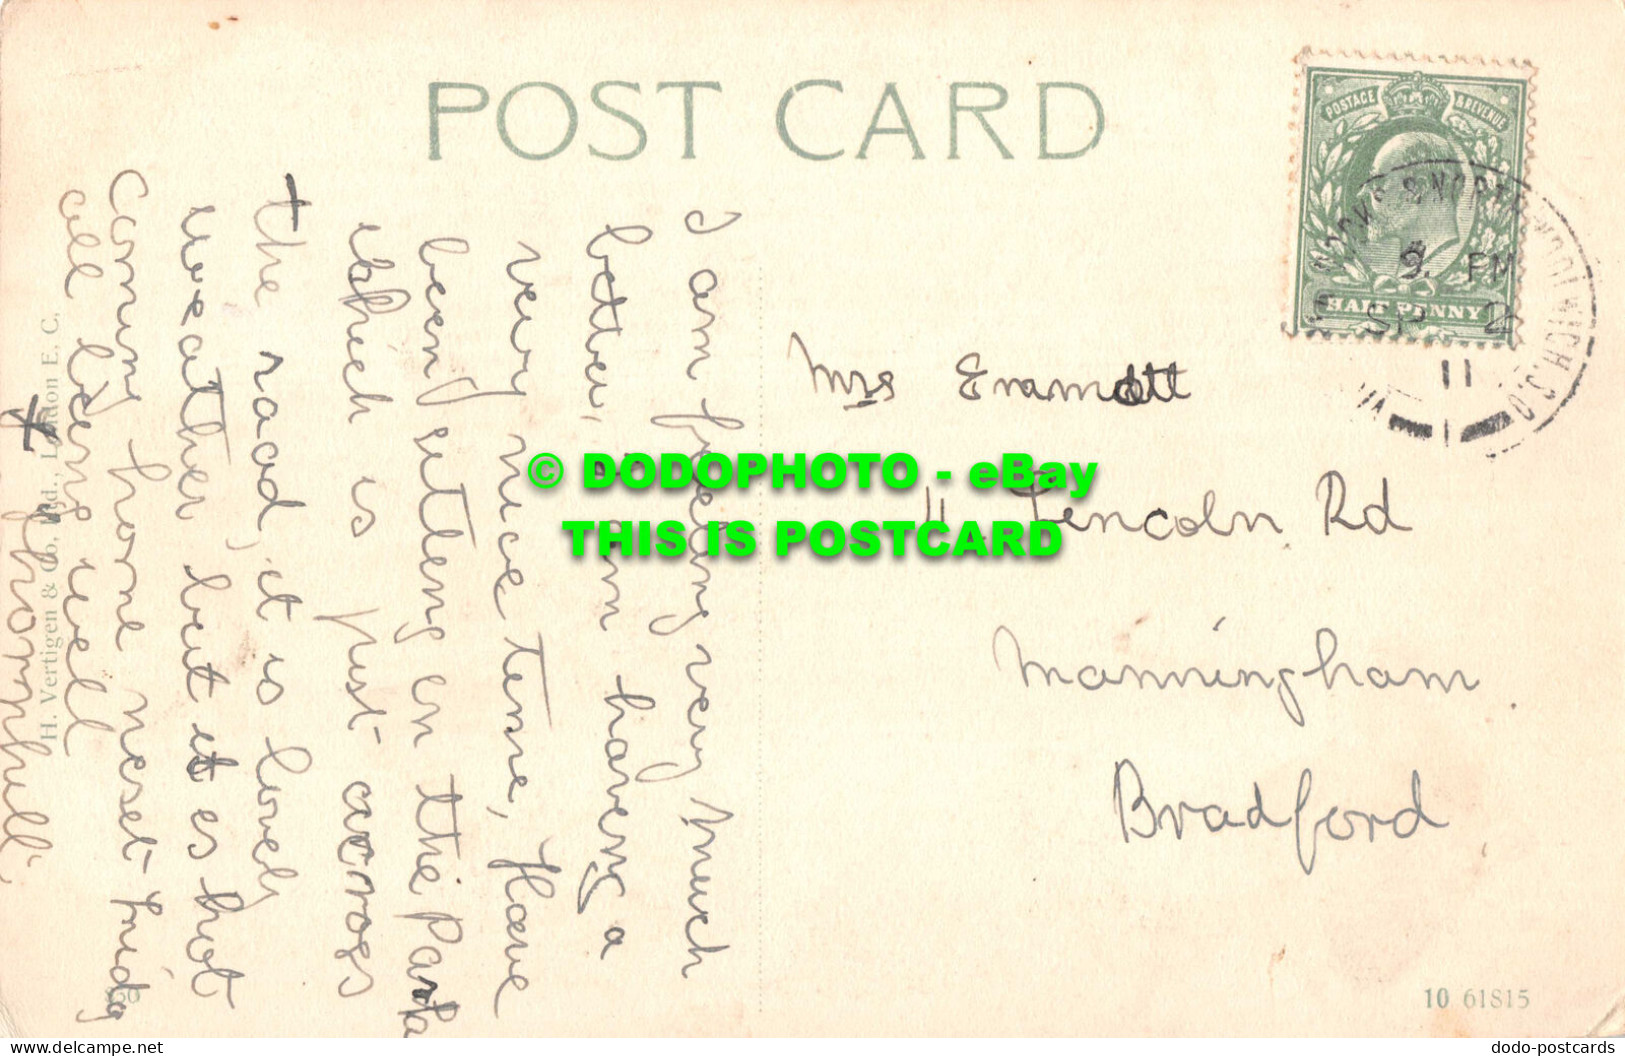 POST CARD
POSTAGE & REVENUE
HALF PENNY
NORTH WOOLWICH. S.O.
9. PM
SP 2
11
I am feeling very much
better, am having a
very nice time, have
been sitting in the Park
which is just across
the road, it is lovely
weather, but it is hot
Coming home next Friday
all being well
F Thornhill
H. Vertigen & Co., Ltd., London E. C.
Mrs Emmott
11 Lincoln Rd
Manningham
Bradford
© DODOPHOTO - eBay
THIS IS POSTCARD
10 61815
dodo-postcards